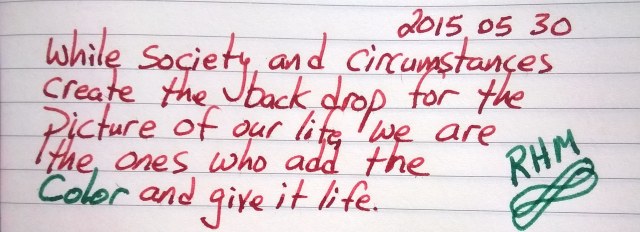 2015 05 30
While society and circumstances
create the back drop for the
picture of our life we are
the ones who add the
Color and give it life.
RHM